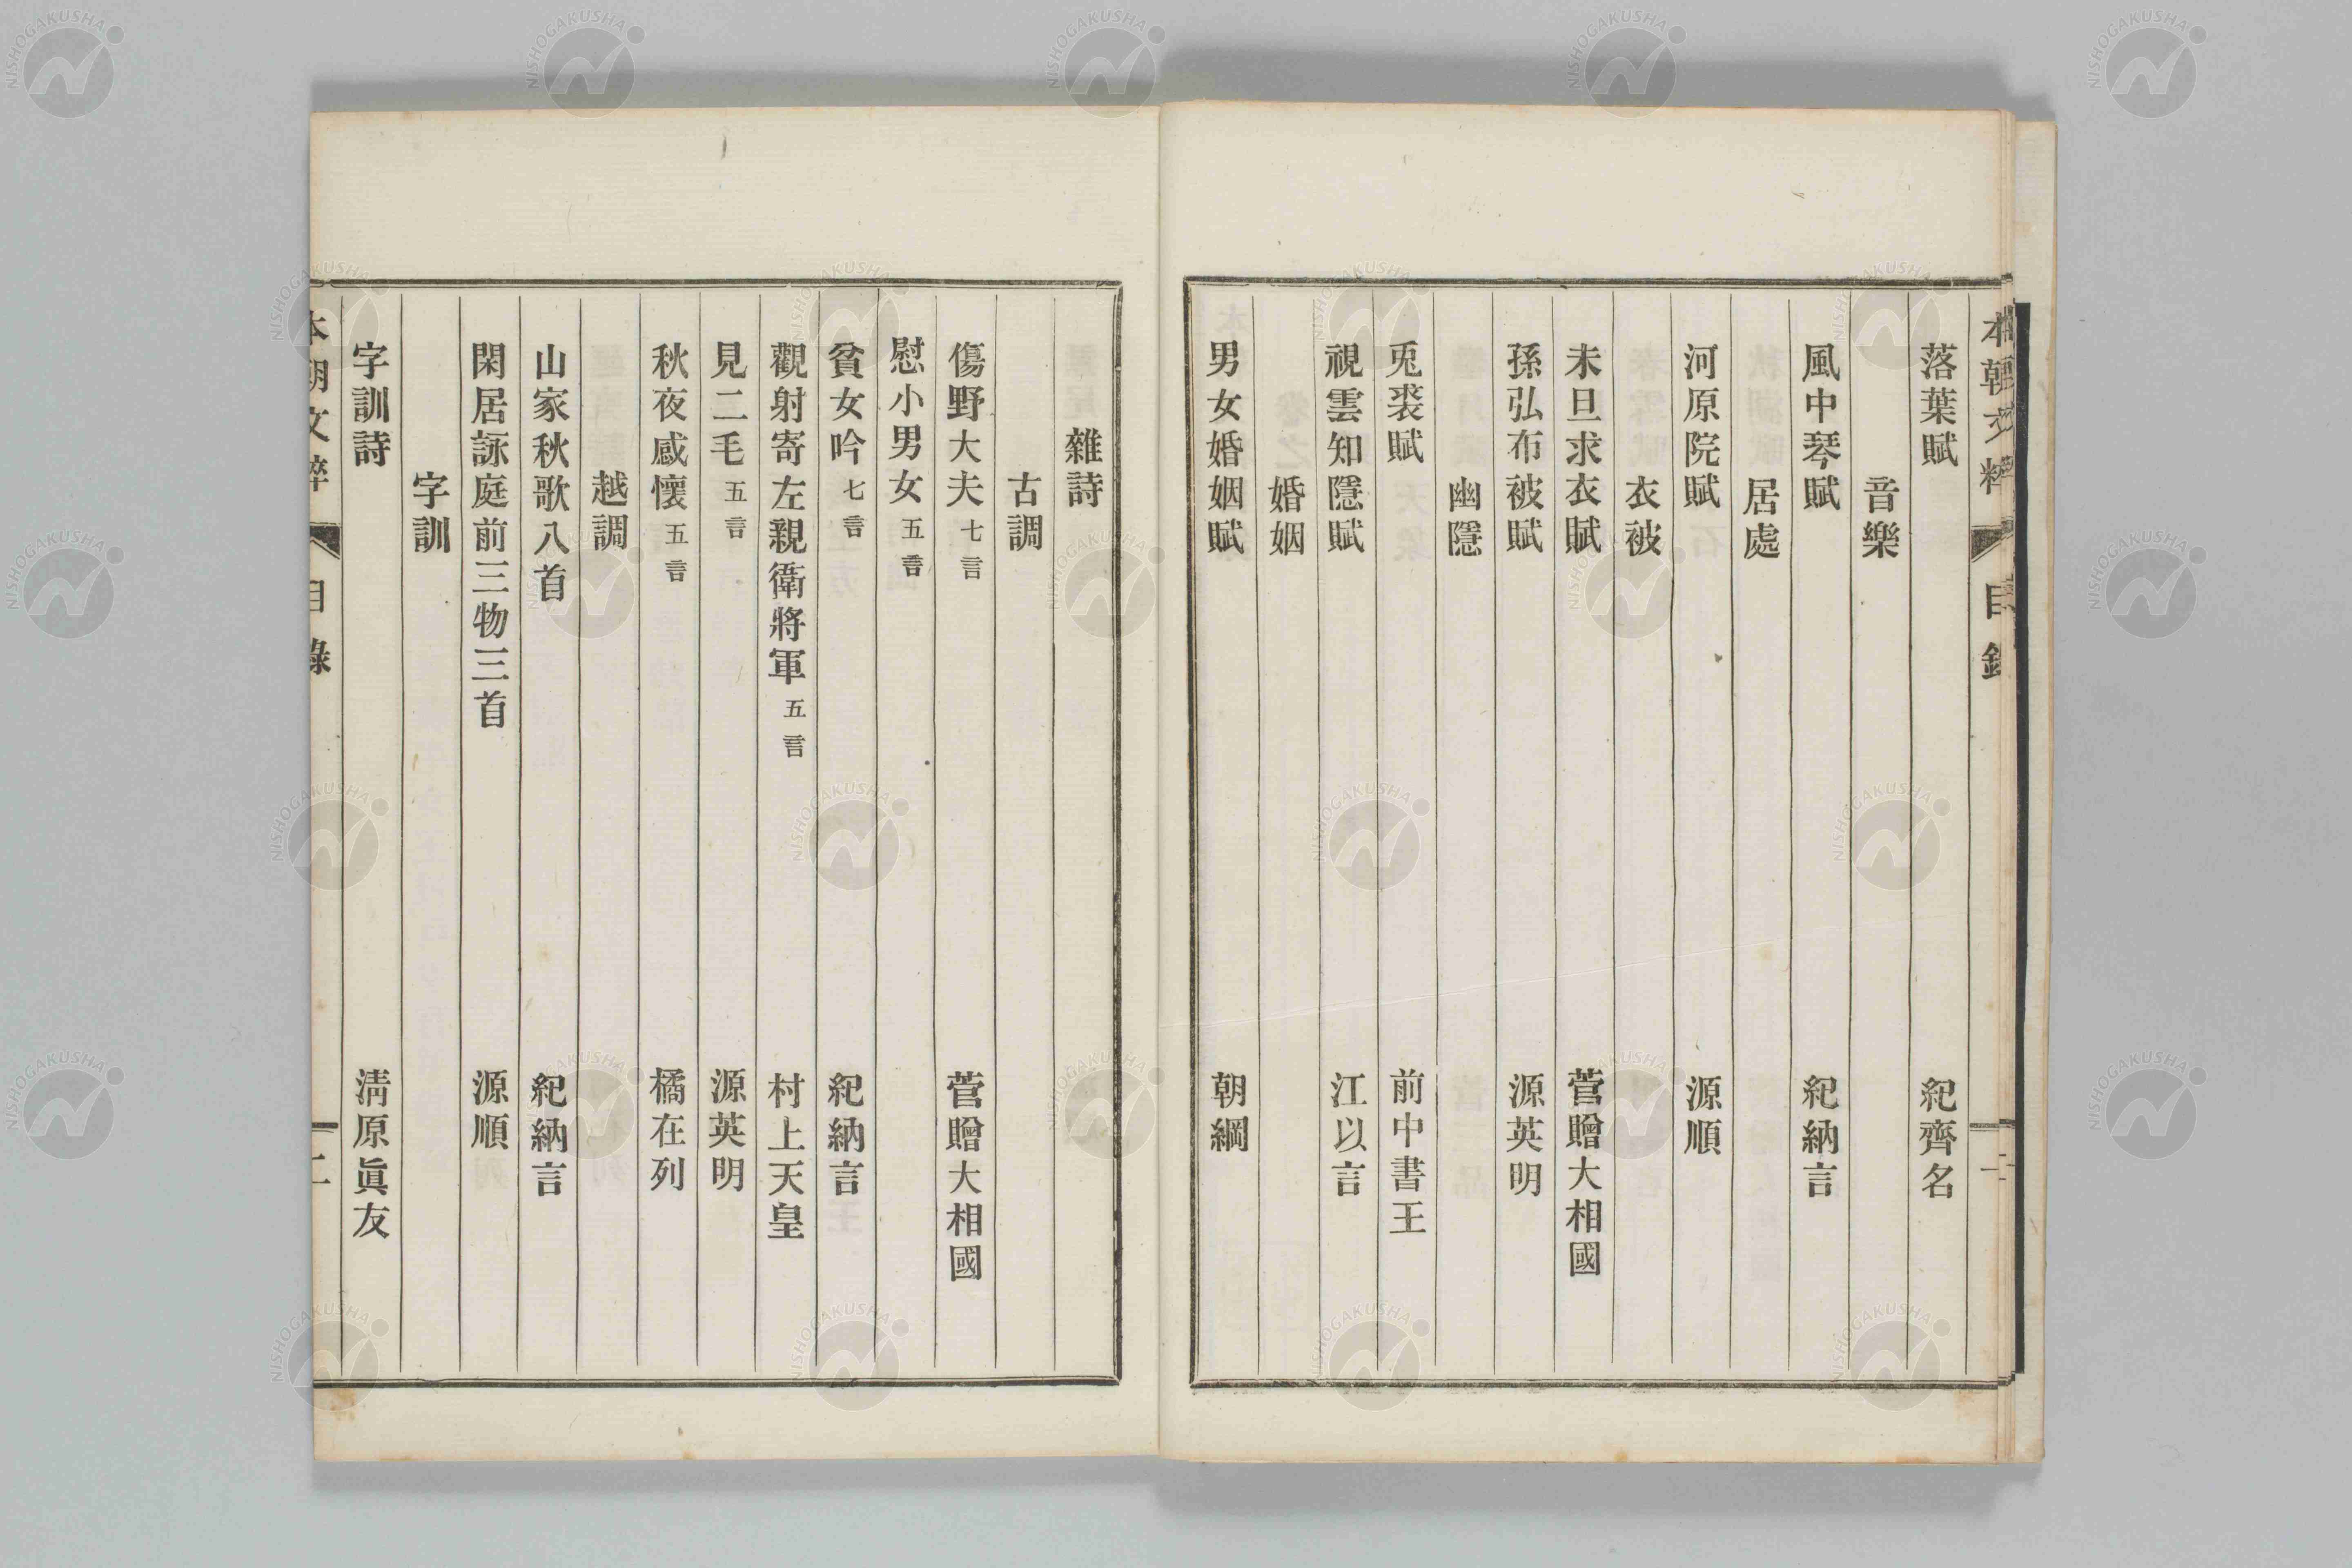 本朝文粹 目錄
落葉賦 紀齊名
音樂
風中琴賦 紀納言
居處
河原院賦 源順
衣被
未旦求衣賦 菅贈大相國
孫弘布被賦 源英明
幽隱
兎裘賦 前中書王
視雲知隱賦 江以言
婚姻
男女婚姻賦 朝綱
雜詩
古調
傷野大夫 七言 菅贈大相國
慰小男女 五言
貧女吟 七言 紀納言
觀射寄左親衛將軍 五言 村上天皇
見二毛 五言 源英明
秋夜感懷 五言 橘在列
越調
山家秋歌八首 紀納言
閑居詠庭前三物三首 源順
字訓
字訓詩 淸原眞友
本朝文粹 目錄 二
NISHOGAKUSHA